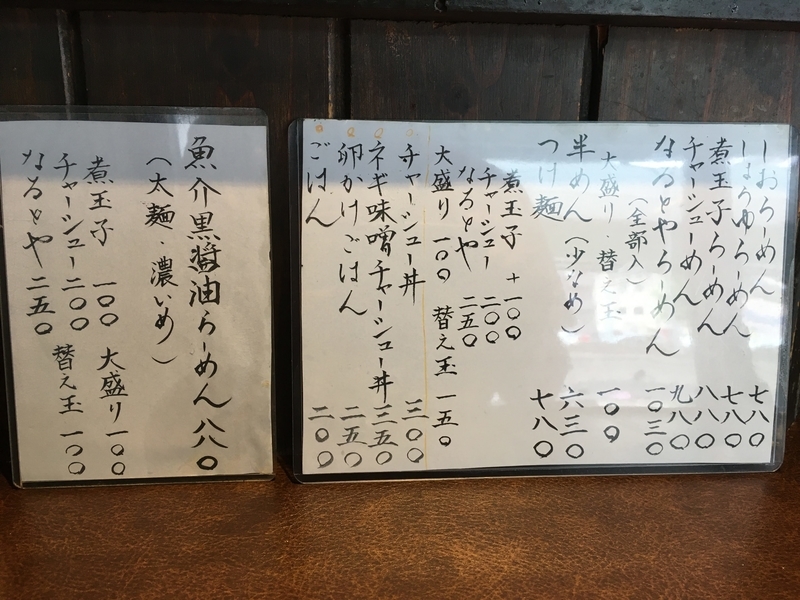 しおらーめん 七八〇
しょうゆらーめん 七八〇
煮玉子らーめん 八八〇
チャーシューめん 九八〇
なるとやらーめん 一〇三〇
(全部入)
大盛り・替え玉 一〇〇
半めん(少なめ) 六三〇
つけ麺 七八〇
煮玉子 +一〇〇
チャーシュー 二〇〇
なるとや 二五〇
大盛り 一〇〇 替え玉 一五〇
チャーシュー丼 三〇〇
ネギ味噌チャーシュー丼 三五〇
卵かけごはん 二五〇
ごはん 二〇〇
魚介黒醤油らーめん 八八〇
(太麺・濃いめ)
煮玉子 一〇〇 大盛り 一〇〇
チャーシュー 二〇〇 替え玉 一〇〇
なるとや 二五〇